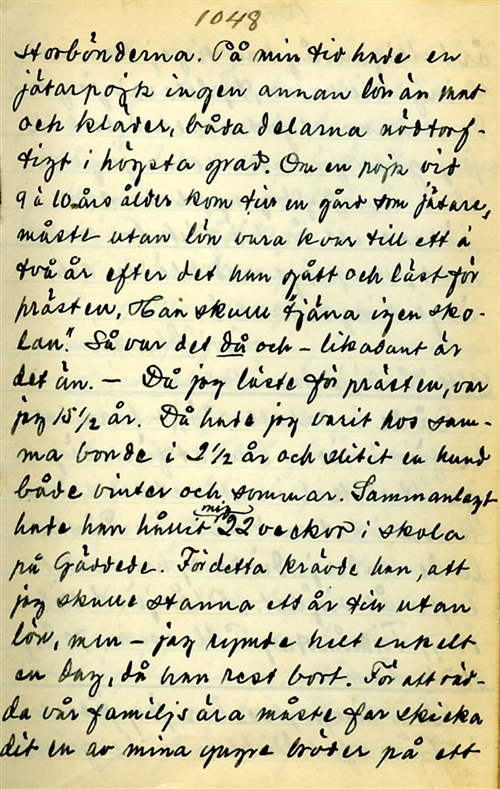 1048
storbönderna. På min tid hade en
jätarpojk ingen annan lön än mat
och kläder, båda delarna nödtorf-
tigt i högsta grad. Om en pojk vid
9 à 10 års ålder kom till en gård som jätare,
måste utan lön vara kvar till ett à
två år efter det han gått och läst för
prästen. Han skulle "tjäna igen sko-
lan." Så var det då och - likadant är
det än. — Då jag läste för prästen, var
jag 15 1/2 år. Då hade jag varit hos sam-
ma bonde i 2 1/2 år och slitit en hund
både vinter och sommar. Sammanlagt
hade han hållit mig 22 veckor i skola
på Gäddede. För detta krävde han, att
jag skulle stanna ett år till utan
lön, men - jag rymde helt enkelt
en dag, då han rest bort. För att räd-
da vår familjs ära måste far skicka
dit en av mina yngre bröder på ett